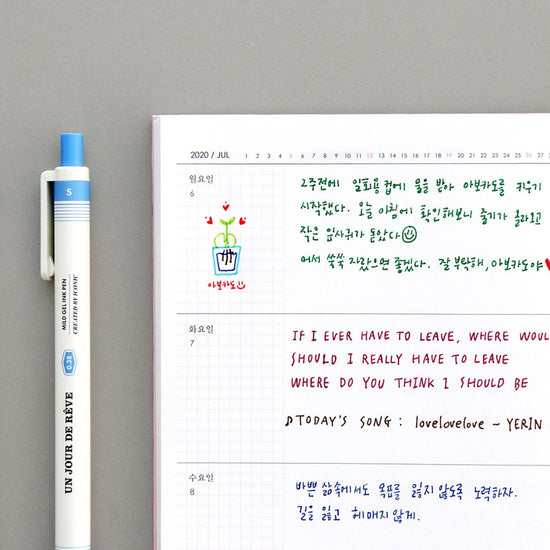 S
MILD GEL INK PEN
CREATED BY ICONIC
0.38
UN JOUR DE RÊVE
2020 / JUL 1 2 3 4 5 6 7 8 9 10 11 12 13 14 15 16 17 18 19 20 21 22 23 24 25 26 27
월요일
6
아보카도
2주전에 일회용 컵에 물을 받아 아보카도를 키우기
시작했다. 오늘 아침에 확인해보니 줄기가 올라오고
작은 잎사귀가 돋았다
어서 쑥쑥 자랐으면 좋겠다. 잘 부탁해, 아보카도야
화요일
7
IF I EVER HAVE TO LEAVE, WHERE WOUL
SHOULD I REALLY HAVE TO LEAVE
WHERE DO YOU THINK I SHOULD BE
♪TODAY'S SONG : lovelovelove - YERIN
수요일
8
바쁜 삶속에서도 목표를 잃지 않도록 노력하자.
길을 잃고 헤매지 않게.